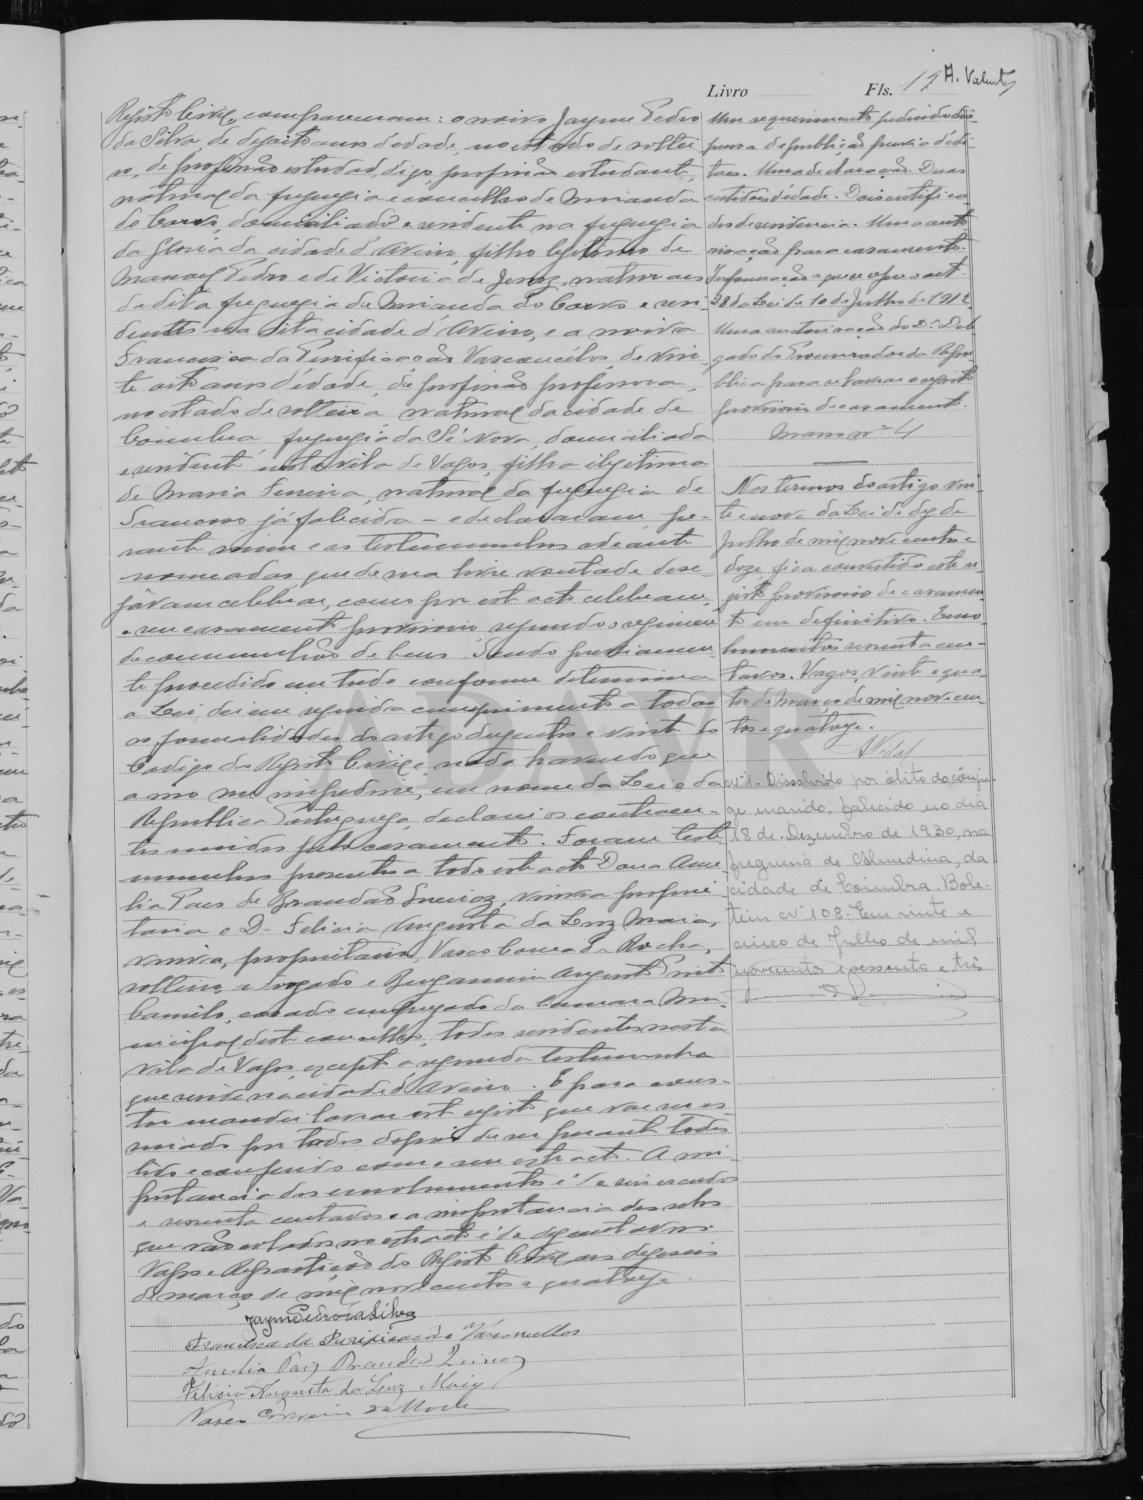 Livro Fls. 12 A. Valente
Registo Civil, compareceram: o noivo Jayme Pedro
da Silva, de dezoito annos d'edade, no estado de soltei-
ro, de profissão estudad, digo, profissão estudante,
natural da freguezia e concelho de Miranda
do Corvo, domiciliado e residente na freguezia
da Gloria da cidade d'Aveiro, filho legitimo de
Manoel Pedro e de Victoria de Jesuz, naturaes
da dita freguezia de Miranda do Corvo e resi-
dentes na dita cidade d'Aveiro, e a noiva
Francisca da Purificação Vasconcélos, de vin-
te oito annos d'edade, de profissão professora,
no estado de solteira natural da cidade de
Coimbra freguezia da Sé Nova, domiciliada
e residente nesta vila de Vagos, filha ilegitima
de Maria Ferreira, natural da freguezia de
já falecida – e declararam pe-
rante mim e as testemunhas adeante
nomeadas que de sua livre vontade dese-
jávam celebrar, como por este acto celebram,
o seu casamento provisorio segundo o regimen
de communhão de bens. Tendo previamen-
te procedido em tudo conforme determina
a Lei, dei em seguida cumprimento a todas
as formalidades do artigo duzentos e vinte do
Codigo do Registo Civil e nada havendo que
a isso me impedisse, em nome da Lei e da
Republica Portugueza, declarei os contraen-
tes unidos pelo casamento. Foram teste-
munhas presentes a todo este acto Dona Ame-
lia Paes de Brandão Queiroz, viuva propriet-
taria e D. Felicia Augusta da Luz Maia,
viuva, proprietaria, Vasco Correia da Rocha,
solteiro, advogado e Benjamim Augusto
Camilo, casado empregado da Camara Mu-
nicipal deste concelho, todos residentes nesta
vila de Vagos, excepto a segunda testemunha
que reside na cidade d'Aveiro. E para cons-
tar mandei lavrar este registo que vae ser as-
sinado por todos depois de ser perante todos
lido e conferido com o seu extracto. A im-
portancia dos emolumentos é de seis escudos
e sessenta centavos e a importancia dos selos
que vão colados no extracto é de dez centavos.
Vagos e Repartição do Registo Civil aos dezaseis
de março de mil novecentos e quatorze.
Jayme Pedro da Silva
Francisca da Purificação Vasconcellos
Amelia Paes Brandão Queiroz
Felicia Augusta da Luz Maia
Vasco Correia da Rocha
Um requerimento pedindo dis-
pensa de publicação previa d'edi-
taes. Uma declaração. Duas
certidões d'edade. Dois certifica-
dos de residencia. Uma auto-
risação para casamento.
Informação a que se refere o art.
28 da Lei de 10 de Julho de 1912.
Uma autorisação do Dr. Dele-
gado do Procurador da Repu-
blica para se lavrar o registo
provisorio de casamento.
Maço nº 4
Nos termos do artigo vin-
te e nove da Lei de dez de
Julho de mil nove centos e
doze fica convertido este re-
gisto provisorio de casamen-
to em definitivo. Emo-
lumentos sessenta cen-
tavos. Vagos, vinte e qua-
tro de Março de mil nove cen-
tos e quatorze.
Nº 1 - Dissolvido por óbito do cônju-
ge marido, falecido no dia
18 de Dezembro de 1930, na
freguesia de Almedina, da
cidade de Coimbra. Bole-
tim nº 108. Em vinte e
cinco de Julho de mil
novecentos e sessenta e três.
ADAVR